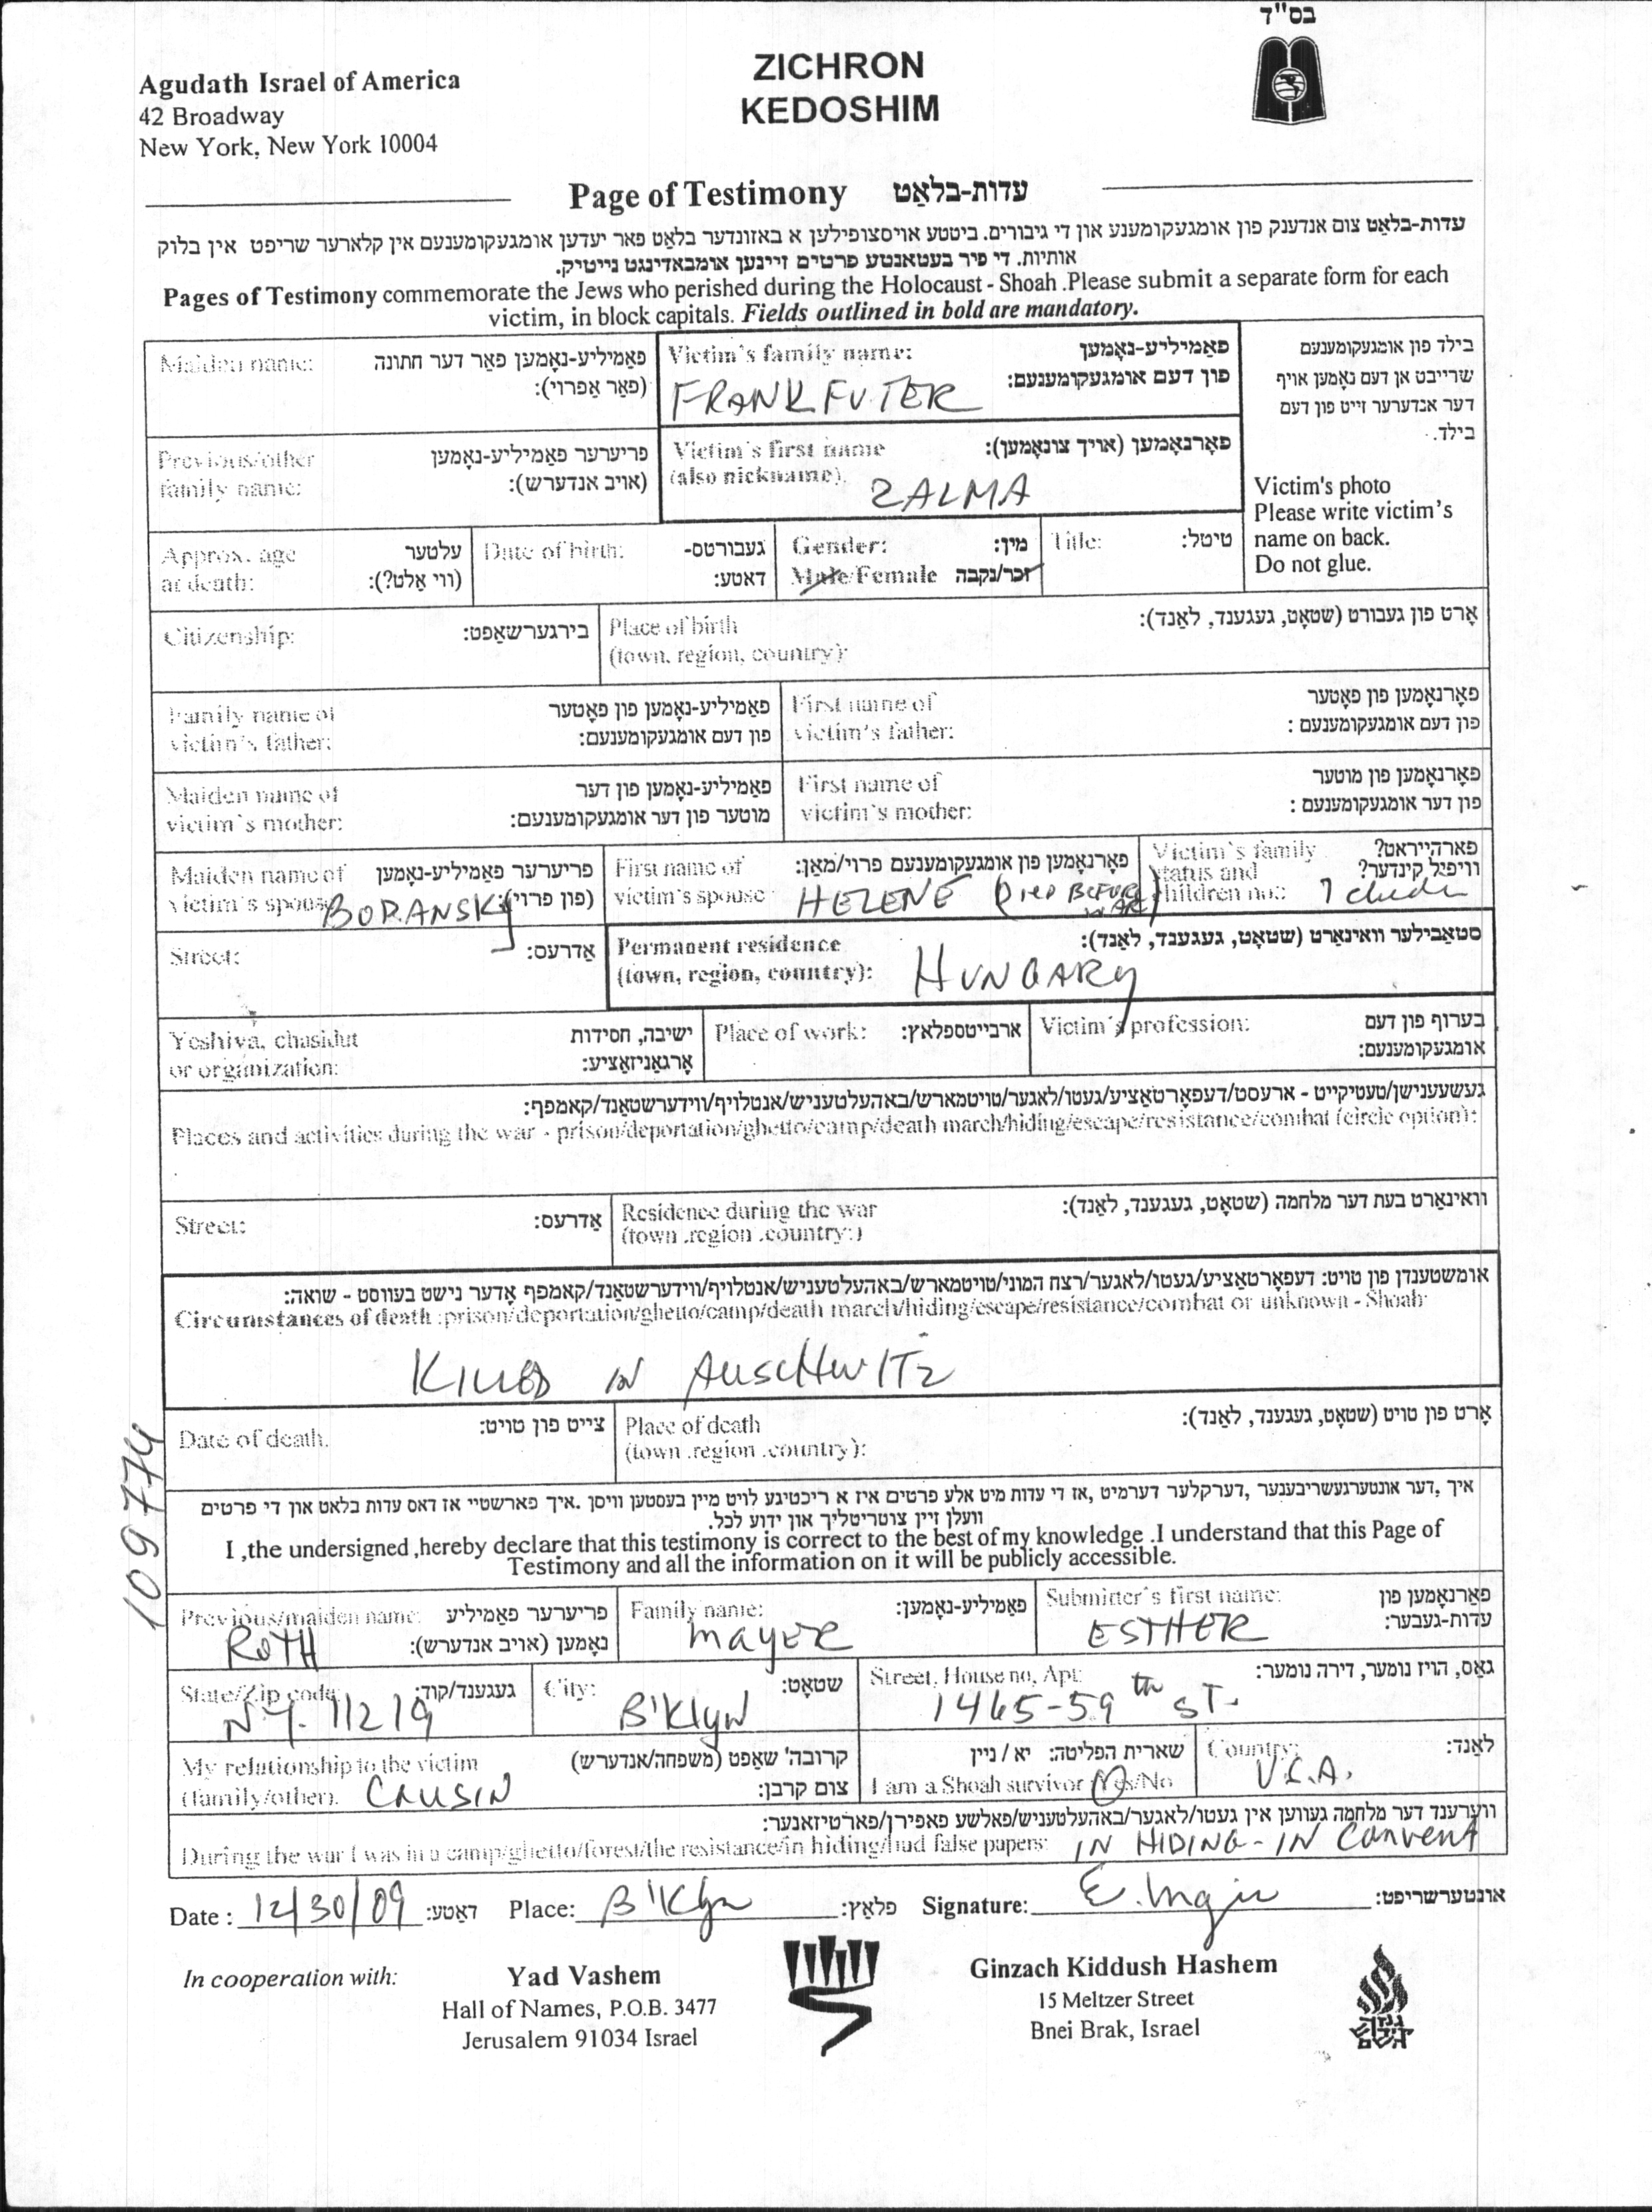 בס"ד
Agudath Israel of America
42 Broadway
New York, New York 10004
ZICHRON
KEDOSHIM
Page of Testimony עדות-בלאַט
עדות-בלאַט צום אנדענק פון אומגעקומענע און די גיבורים. ביטטע אויסצופילען א באזונדער בלאַט פאר יעדען אומגעקומענעם אין קלארער שריפט אין בלוק
אותיות. די פיר בעטאנטע פרטים זיינען אומבאדינגט נייטיק.
Pages of Testimony commemorate the Jews who perished during the Holocaust - Shoah .Please submit a separate form for each
victim, in block capitals. Fields outlined in bold are mandatory.
Maiden name: פאַמיליע-נאָמען פאַר דער חתונה
(פאַר אַפרוי):
Victim's family name: פאַמיליע-נאָמען
פון דעם אומגעקומענעם:
FRANKFUTER
בילד פון אומגעקומענעם
שרייבט אן דעם נאָמען אויף
דער אנדערער זייט פון דעם
בילד.
Previous/other פריערער פאַמיליע-נאָמען
family name: (אויב אנדערש):
Victim's first name פאָרנאָמען (אויך צונאָמען):
(also nickname).
ZALMA
Victim's photo
Please write victim's
name on back.
Do not glue.
Approx. age עלטער
at death: (ווי אַלט?):
Date of birth: געבורטס-
דאטע:
Gender: מין:
Male/Female זכר/נקבה
Title: טיטל:
Citizenship: בירגערשאַפט:
Place of birth אָרט פון געבורט (שטאָט, געגענד, לאַנד):
(town, region, country):
Family name of פאַמיליע-נאָמען פון פאָטער
victim's father: פון דעם אומגעקומענעם:
First name of פאָרנאָמען פון פאָטער
victim's father: פון דעם אומגעקומענעם :
Maiden name of פאַמיליע-נאָמען פון דער
victim's mother: מוטער פון דער אומגעקומענעם:
First name of פאָרנאָמען פון מוטער
victim's mother: פון דער אומגעקומענעם :
Maiden name of פריערער פאַמיליע-נאָמען
victim's spouse (פון פרוי):
BORANSKY
First name of פאָרנאָמען פון אומגעקומענעם פרוי/מאַן:
victim's spouse :
HELENE (DIED BEFORE
WAR)
Victim's family פארהייראט?
status and וויפיל קינדער?
children no.:
Street: אַדרעס:
Permanent residence סטאַבילער וואינאָרט (שטאָט, געגענד, לאַנד):
(town, region, country):
HUNGARY
Yeshiva, chasidut ישיבה, חסידות
or organization: אָרגאַניזאַציע:
Place of work: ארבייטספלאץ:
Victim's profession: בערוף פון דעם
אומגעקומענעם:
געשעענישן/טעטיקייט - ארעסט/דעפאָרטאַציע/געטו/לאגער/טויטמארש/באהעלטעניש/אנטלויף/ווידערשטאַנד/קאמפף:
Places and activities during the war - prison/deportation/ghetto/camp/death march/hiding/escape/resistance/combat (circle option):
Street: אַדרעס:
Residence during the war וואינאַרט בעת דער מלחמה (שטאָט, געגענד, לאַנד):
(town .region .country:)
אומשטענדן פון טויט: דעפאָרטאַציע/געטו/לאגער/רצח המוני/טויטמארש/באהעלטעניש/אנטלויף/ווידערשטאַנד/קאמפף אָדער נישט בעוווסט - שואה:
Circumstances of death :prison/deportation/ghetto/camp/death march/hiding/escape/resistance/combat or unknown - Shoah
KILLED IN AUSCHWITZ
Date of death. צייט פון טויט:
Place of death אָרט פון טויט (שטאָט, געגענד, לאַנד):
(town .region .country):
109774
איך ,דער אונטערגעשריבענער ,דערקלער דערמיט ,אז די עדות מיט אלע פרטים איז א ריכטיגע לויט מיין בעסטען וויסן .איך פארשטיי אז דאס עדות בלאט און די פרטים
וועלן זיין צוטריטליך און ידוע לכל.
I ,the undersigned ,hereby declare that this testimony is correct to the best of my knowledge .I understand that this Page of
Testimony and all the information on it will be publicly accessible.
Previous/maiden name: פריערער פאַמיליע
נאָמען (אויב אנדערש):
ROTH
Family name: פאַמיליע-נאָמען:
MAYER
Submitter's first name: פאַרנאָמען פון
עדות-געבער:
ESTHER
State/Zip code: געגענד/קוד:
N.Y. 11219
City: שטאָט:
B'Klyn
Street, House no, Apt: גאַס, הויז נומער, דירה נומער:
1465-59th ST.
My relationship to the victim קרובה' שאַפט (משפחה/אנדערש)
(family/other). צום קרבן:
CAUSIN
שארית הפליטה: יא / ניין
I am a Shoah survivor Yes/No
Country: לאנד:
U.S.A.
ווערענד דער מלחמה געווען אין געטו/לאגער/באהעלטעניש/פאלשע פאפירן/פארטיזאנער:
During the war I was in a camp/ghetto/forest/the resistance/in hiding/had false papers: IN HIDING - IN CONVENT
Date : 12/30/09 דאַטע: Place: B'Klyn פלאַץ: Signature: אונטערשריפט:
In cooperation with:
Yad Vashem
Hall of Names, P.O.B. 3477
Jerusalem 91034 Israel
Ginzach Kiddush Hashem
15 Meltzer Street
Bnei Brak, Israel